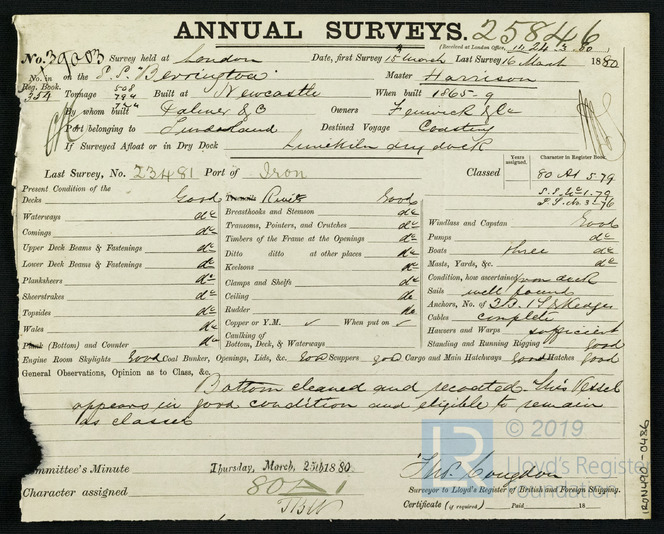 ANNUAL SURVEYS. 25846
(Received at London Office, 24.3.80)
No. 39003 Survey held at London Date, first Survey 15 March Last Survey 16 March 1880
No. in Reg. Book. 354 on the S.S. Berrington Master Harrison
Tonnage Built at Newcastle When built 1865-9
By whom built Palmer & Co Owners Fenwick & Co
Port belonging to Sunderland Destined Voyage Coasting
If Surveyed Afloat or in Dry Dock Limekiln dry dock
Last Survey, No. 23481 Port of Iron Classed
Years assigned.
Character in Register Book.
80 A1 5.79
S.S. No 1-79
S.S. No 3-76
Present Condition of the
Decks Good
Waterways do
Comings do
Upper Deck Beams & Fastenings do
Lower Deck Beams & Fastenings do
Planksheers do
Sheerstrakes do
Topsides do
Wales do
Plank (Bottom) and Counter do
Treenails Rivets Good
Breasthooks and Stemson do
Transoms, Pointers, and Crutches do
Timbers of the Frame at the Openings do
Ditto ditto at other places do
Keelsons do
Clamps and Shelfs do
Ceiling do
Rudder do
Copper or Y.M. ✓ When put on ✓
Caulking of Bottom, Deck, & Waterways
Windlass and Capstan Good
Pumps do
Boats three do
Masts, Yards, &c. do
Condition, how ascertained from deck
Sails well found
Anchors, No. of
Cables complete
Hawsers and Warps sufficient
Standing and Running Rigging Good
Engine Room Skylights Good Coal Bunker, Openings, Lids, &c. Good Scuppers good Cargo and Main Hatchways Good Hatches good
General Observations, Opinion as to Class, &c.
Bottom cleaned and recoated. This Vessel
appears in good condition and eligible to remain
as classed
Committee's Minute Thursday, March, 25th 1880.
Character assigned 80 A1
Thos. Congdon
Surveyor to Lloyd's Register of British and Foreign Shipping.
Certificate (if required) Paid 18
LR
© 2019
Lloyd's Register
Foundation
IRON490-0486